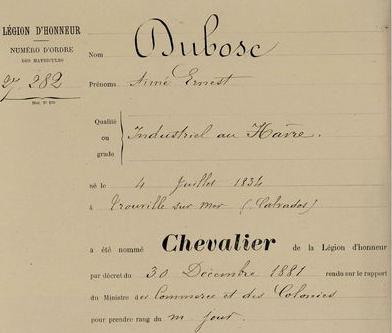 LÉGION D'HONNEUR
NUMÉRO D'ORDRE
DES MATRICULES
27.282
Nom Dubosc
Prénoms Aimé Ernest
Qualité ou grade Industriel au Hâvre.
né le 4 Juillet 1834
à Trouville sur mer (Calvados)
a été nommé Chevalier de la Légion d'honneur
par décret du 30 Décembre 1881 rendu sur le rapport
du Ministre des Commerce et des Colonies
pour prendre rang du m. jour.